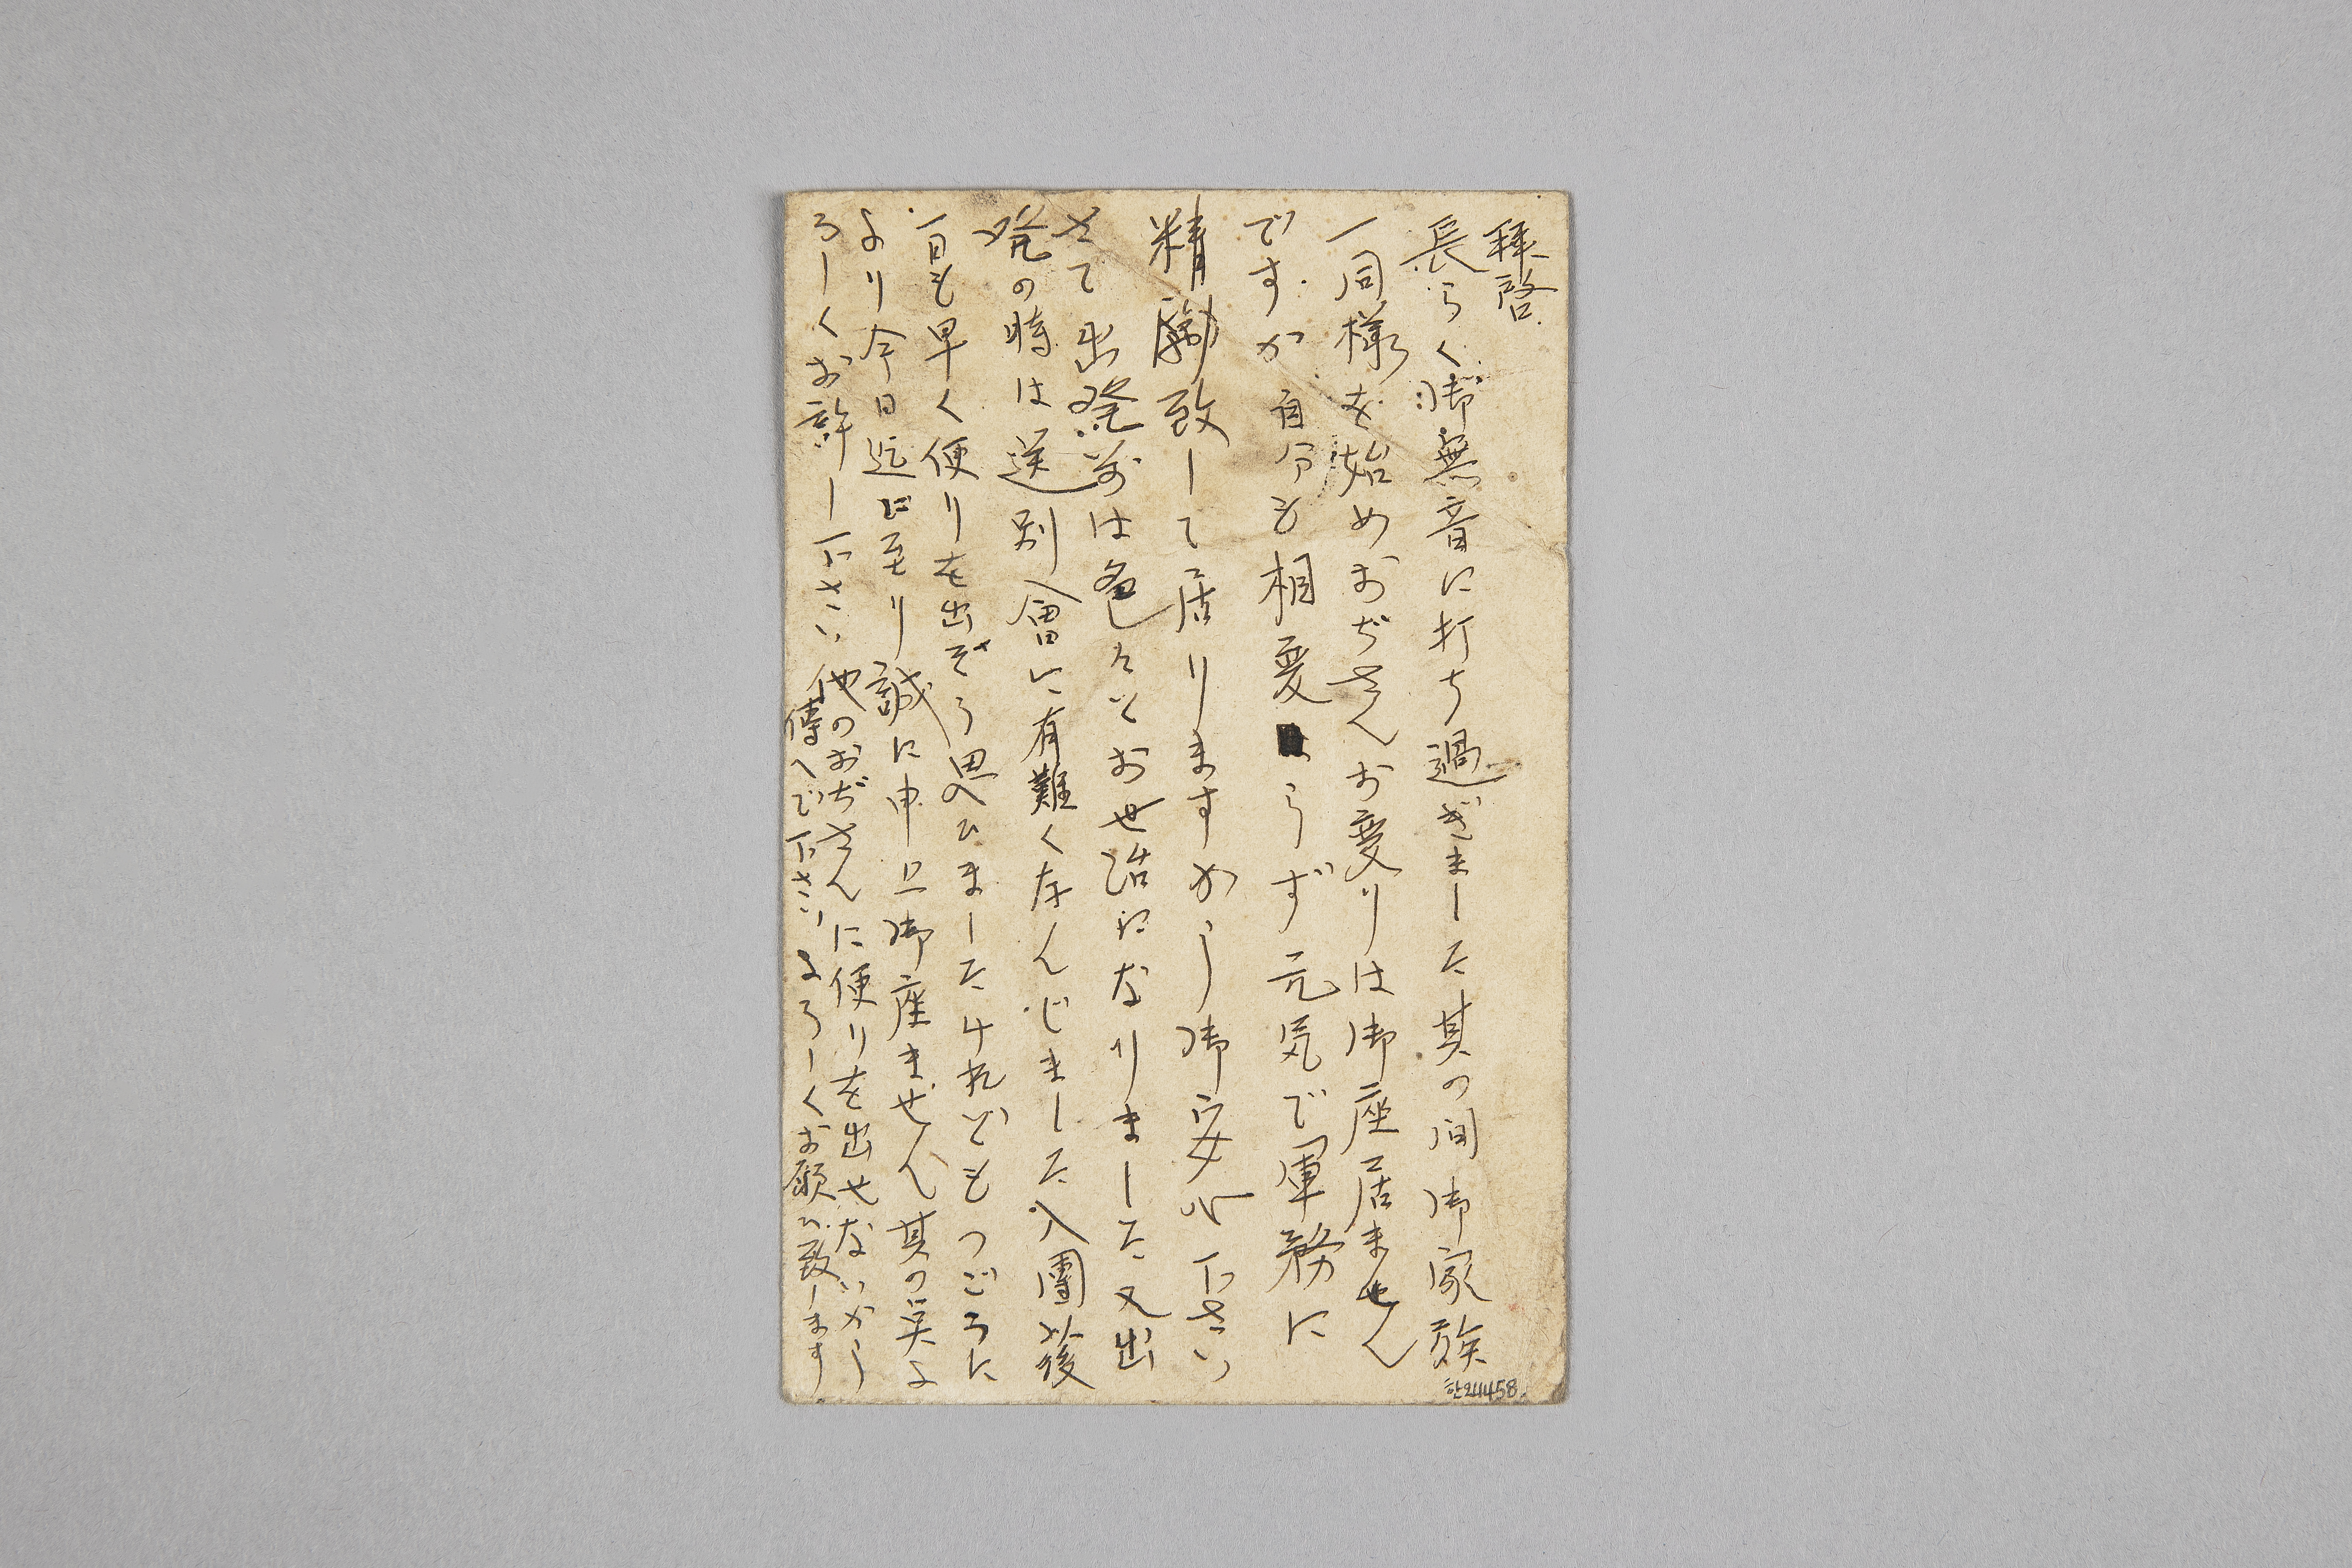 拝啓
長らく御無音に打ち過ぎました其の間御家族
一同様を始めおぢさんお変りは御座居ません
ですか自分も相変らず元気で軍務に
精励致して居りますから御安心下さい
さて出発前は色々とお世話になりました又出
発の時は送別會に有難くなんじました入團後
一日も早く便りを出ぞう思ひましたけれどもつごうに
より今日迄に至り誠に申上御座ません其の点よ
ろしくお許し下さい他のおぢさんに便りを出せないから
傳へで下さいよろしくお願ひ致します
한21458